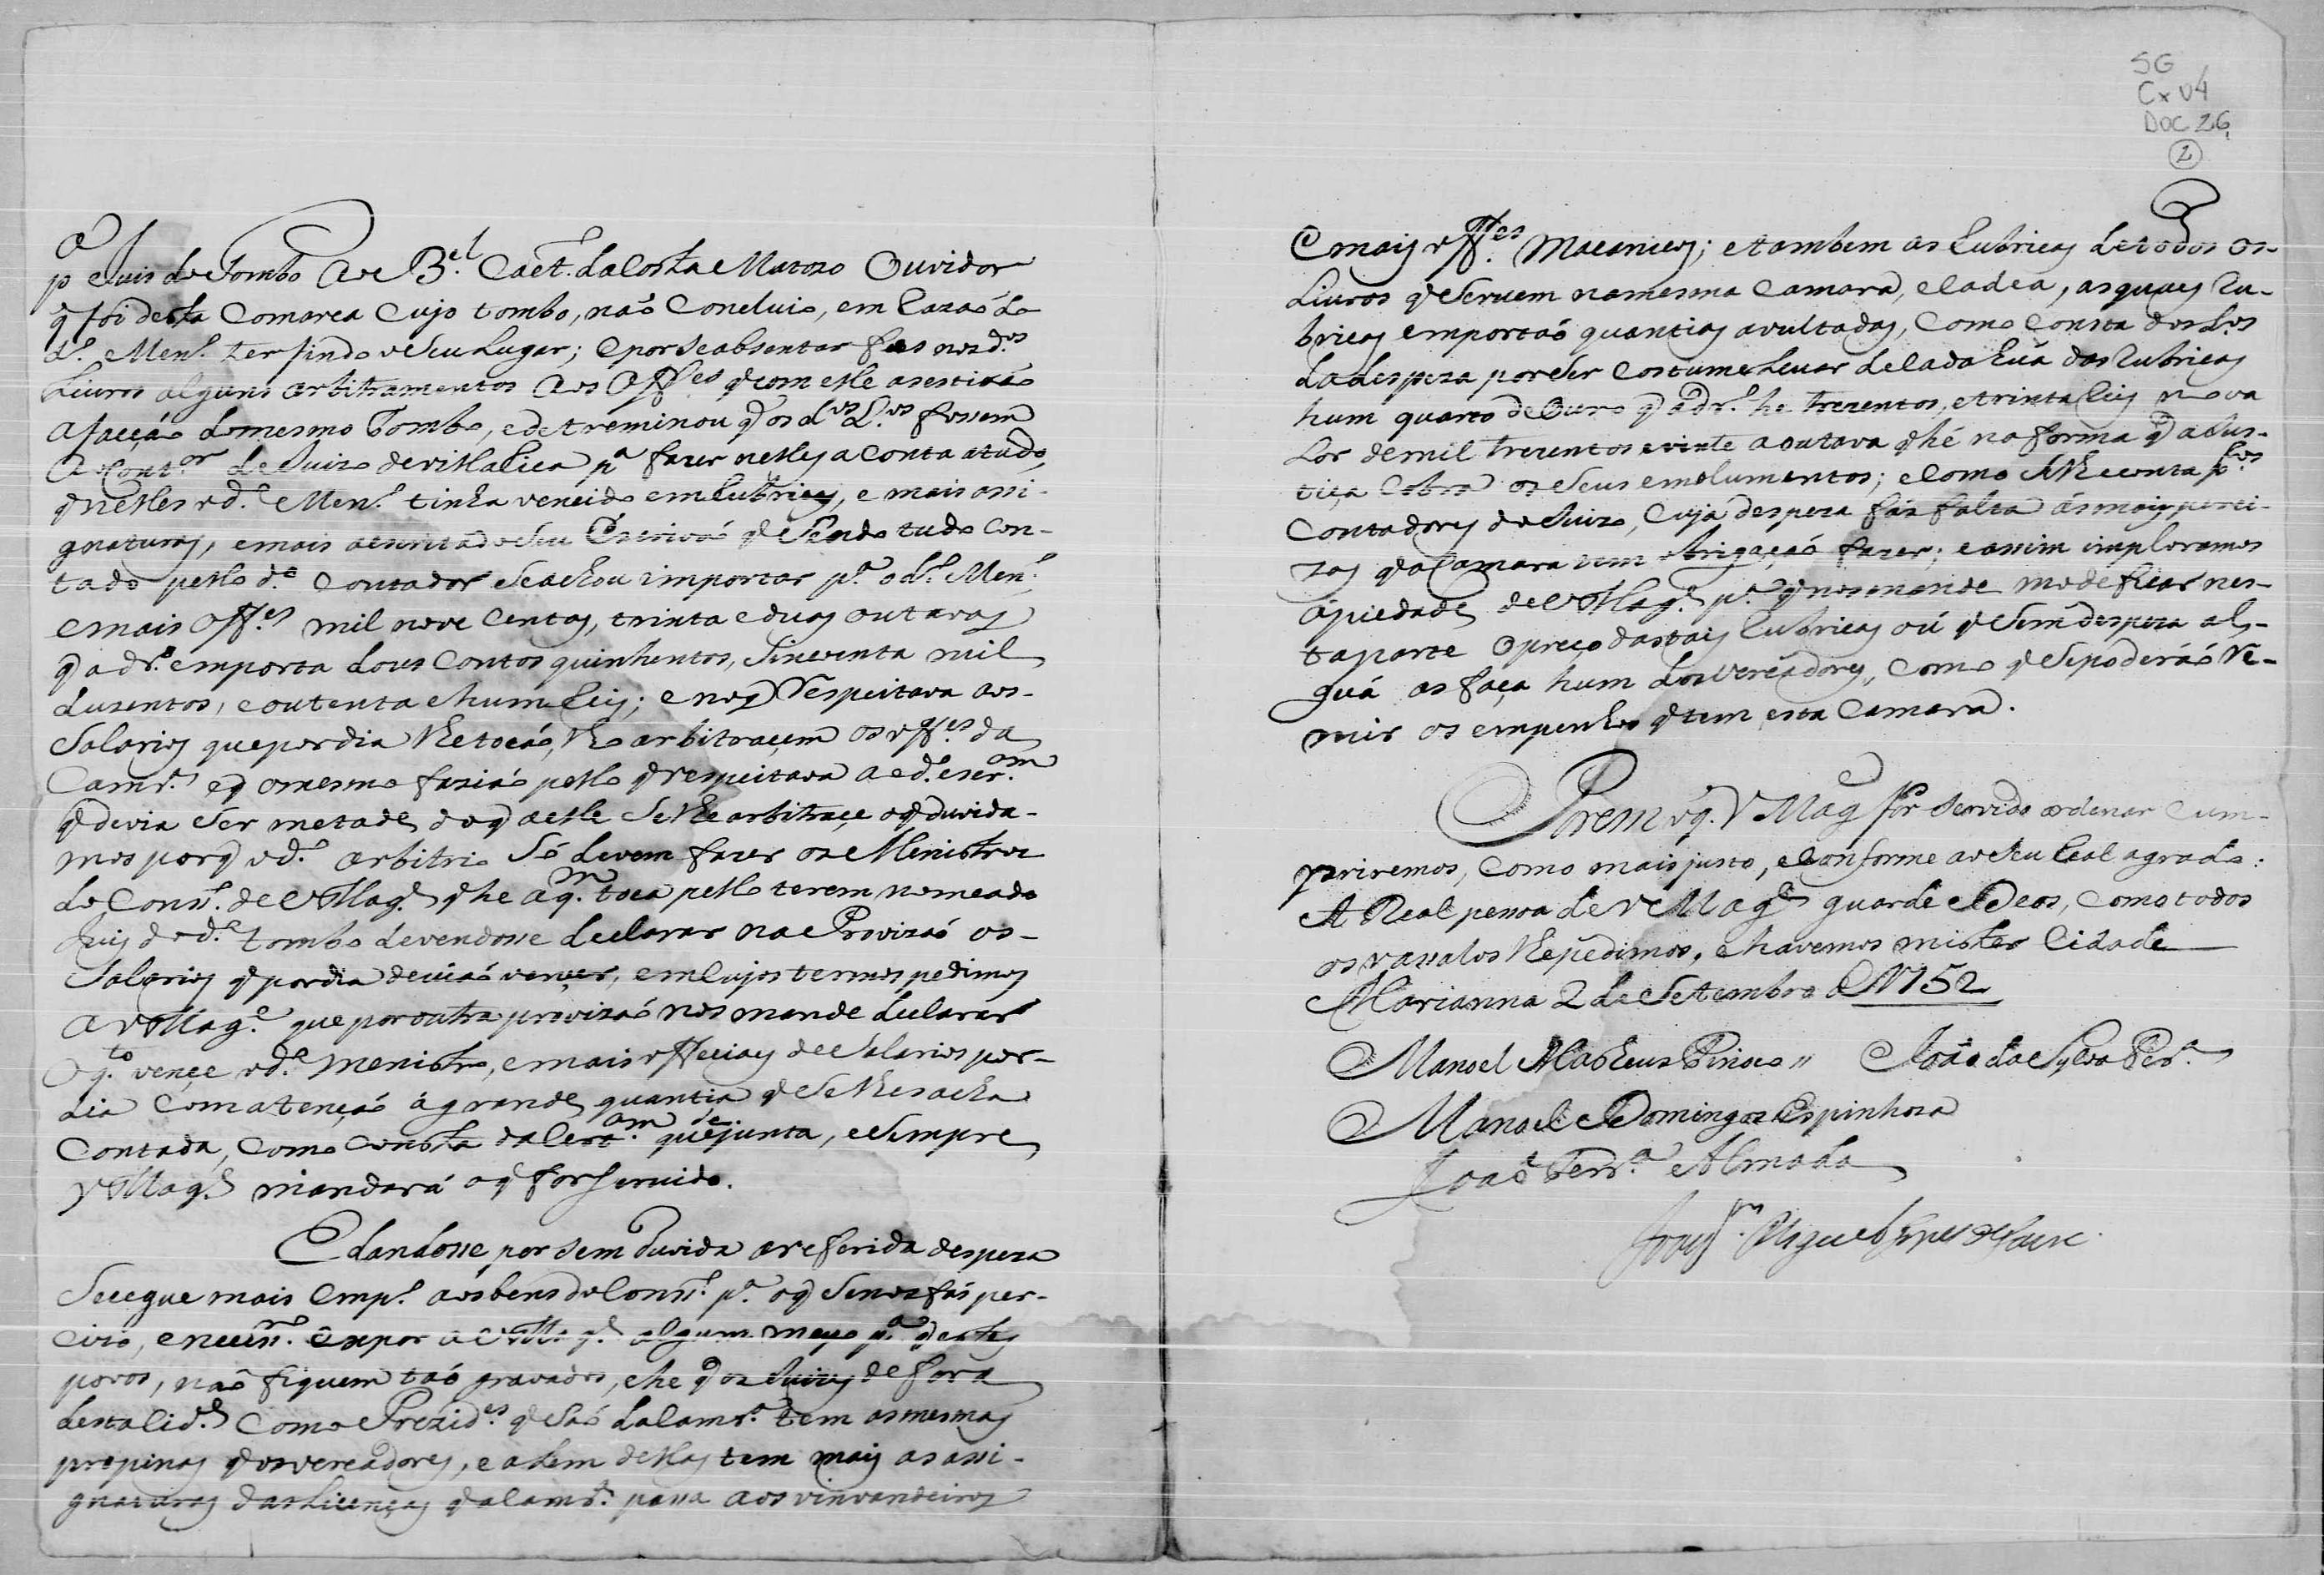 p.ª Juis do Tombo ao B.el Caet.º da Costa Matozo Ouvidor
q̃ foi desta Comarca Cujo tombo, naõ Concluio, em Razaõ do
d.º Men.º ter findo o Seu Lugar; e por se absentar fes nos d.os
Livros alguns arbitramentos aos Off.es q̃ com elle asestiraõ
a facçaõ do mesmo Tombo, e detreminou q̃ os d.os L.os fossem
ao Cont.or do Juizo de villa Rica p.ª fazer nelles a conta a tudo,
q̃ nelles o d.º Men.º tinha vencido em Rubricas, e mais assi-
gnaturas, e mais ascrita do Seu Escrivaõ q̃ Sendo tudo Con-
tado pello d.º Contador Se achou importar p.ª o d.º Men.º,
e mais Off.es mil nove Centas, trinta e duas outavas
q̃ a dr.º emporta dous Contos quinhentos, Sincoenta mil
duzentos, e outenta e hum Reis; e no q̃ Respeitava aos
Salarios que por dia lhe tocaõ, lho arbitracem os off.es da
Camr.ª e q̃ o mesmo faziaõ pello q̃ respeitava ao d.º escr.am
q̃ devia Ser metade do q̃ a elle Se lhe arbitraçe o q̃ duvida-
mos porq̃ o d.º arbitrio Só devem fazer os Ministros
do Cons.º de V Mag.e q̃ he a q.m toca pello terem nomeado
Juis do d.º tombo devendosse declarar na Provizaõ os
Salarios q̃ por dia deviaõ vencer, em cujos termos pedimos
a V Mag.e que por outra provizaõ nos mande declarar
q.to vençe o d.º Menistro, e mais officiais de Salarios por
dia Com atençaõ á grande quantia q̃ Se lhes acha
Contada, Como Consta da Cert.am que se junta, e Sempre
V Mag.e mandará o q̃ for Servido.
E dandosse por sem duvida a referida despeza
Secegue mais Emp.º aos bens do Cons.º p.ª o q̃ Se nos fás per-
cizo, e necess.rº expor a V Mag.e algum meyo p.ª q̃ estes
povos, naõ fiquem taõ gravados, e he q̃ os Juizes de fora
desta Cid.e Como Prezid.es q̃ Saõ da Camr.ª tem as mesmas
propinas q̃ os vereadores, e alem dellas tem mais as assi-
gnaturas das Licenças q̃ a Camr.ª passa aos vinvandeiros
e mais off.es Macanicos; e tambem as Rubricas de todos os
Livros q̃ Servem na mesma Camara, e Cadea, as quais Ru-
bricas emportaõ quantias avultadas, Como Consta dos L.os
da despeza por Ser Costume Levar de Cada huã das Rubricas
hum quarto de Ouro q̃ a dr.º he trezentos, e trinta Reis no va
Lor de mil trezentos e vinte a outava q̃ hé na forma q̃ a Jus-
tiça Cobra os Seus emolumentos; e Como Se lhe conta p.los
Contadores do Juizo, Cuja despeza fás falta ás mais perci-
zas q̃ a Camara tem obrigaçaõ fazer; e assim imploramos
á piedade de V Mag.e p.ª q̃ nos mande modeficar nes-
ta parte o preço das tais Rubricas ou q̃ Sem despeza al-
guá as faça hum dos Vereadores, Como q̃ Se poderaõ Re-
mir os empenhos q̃ tem esta Camara.
Porem o q̃ V Mag.e for Servido ordenar Cum-
priremos, Como mais justo, e Conforme ao Seu Real agrado:
A Real pessoa de V Mag.e guarde Deos, Como todos
os vassalos lhe pedimos, e havemos mister Cidade
Marianna 2 de Setembro 1752
Manoel Matheus Tinoco // João da Sylva Per.ª
Manoel Domingos Espinhoza
Joaõ Ferr.ª Almada
Miguel
SG
Cx 04
DOC 26
2